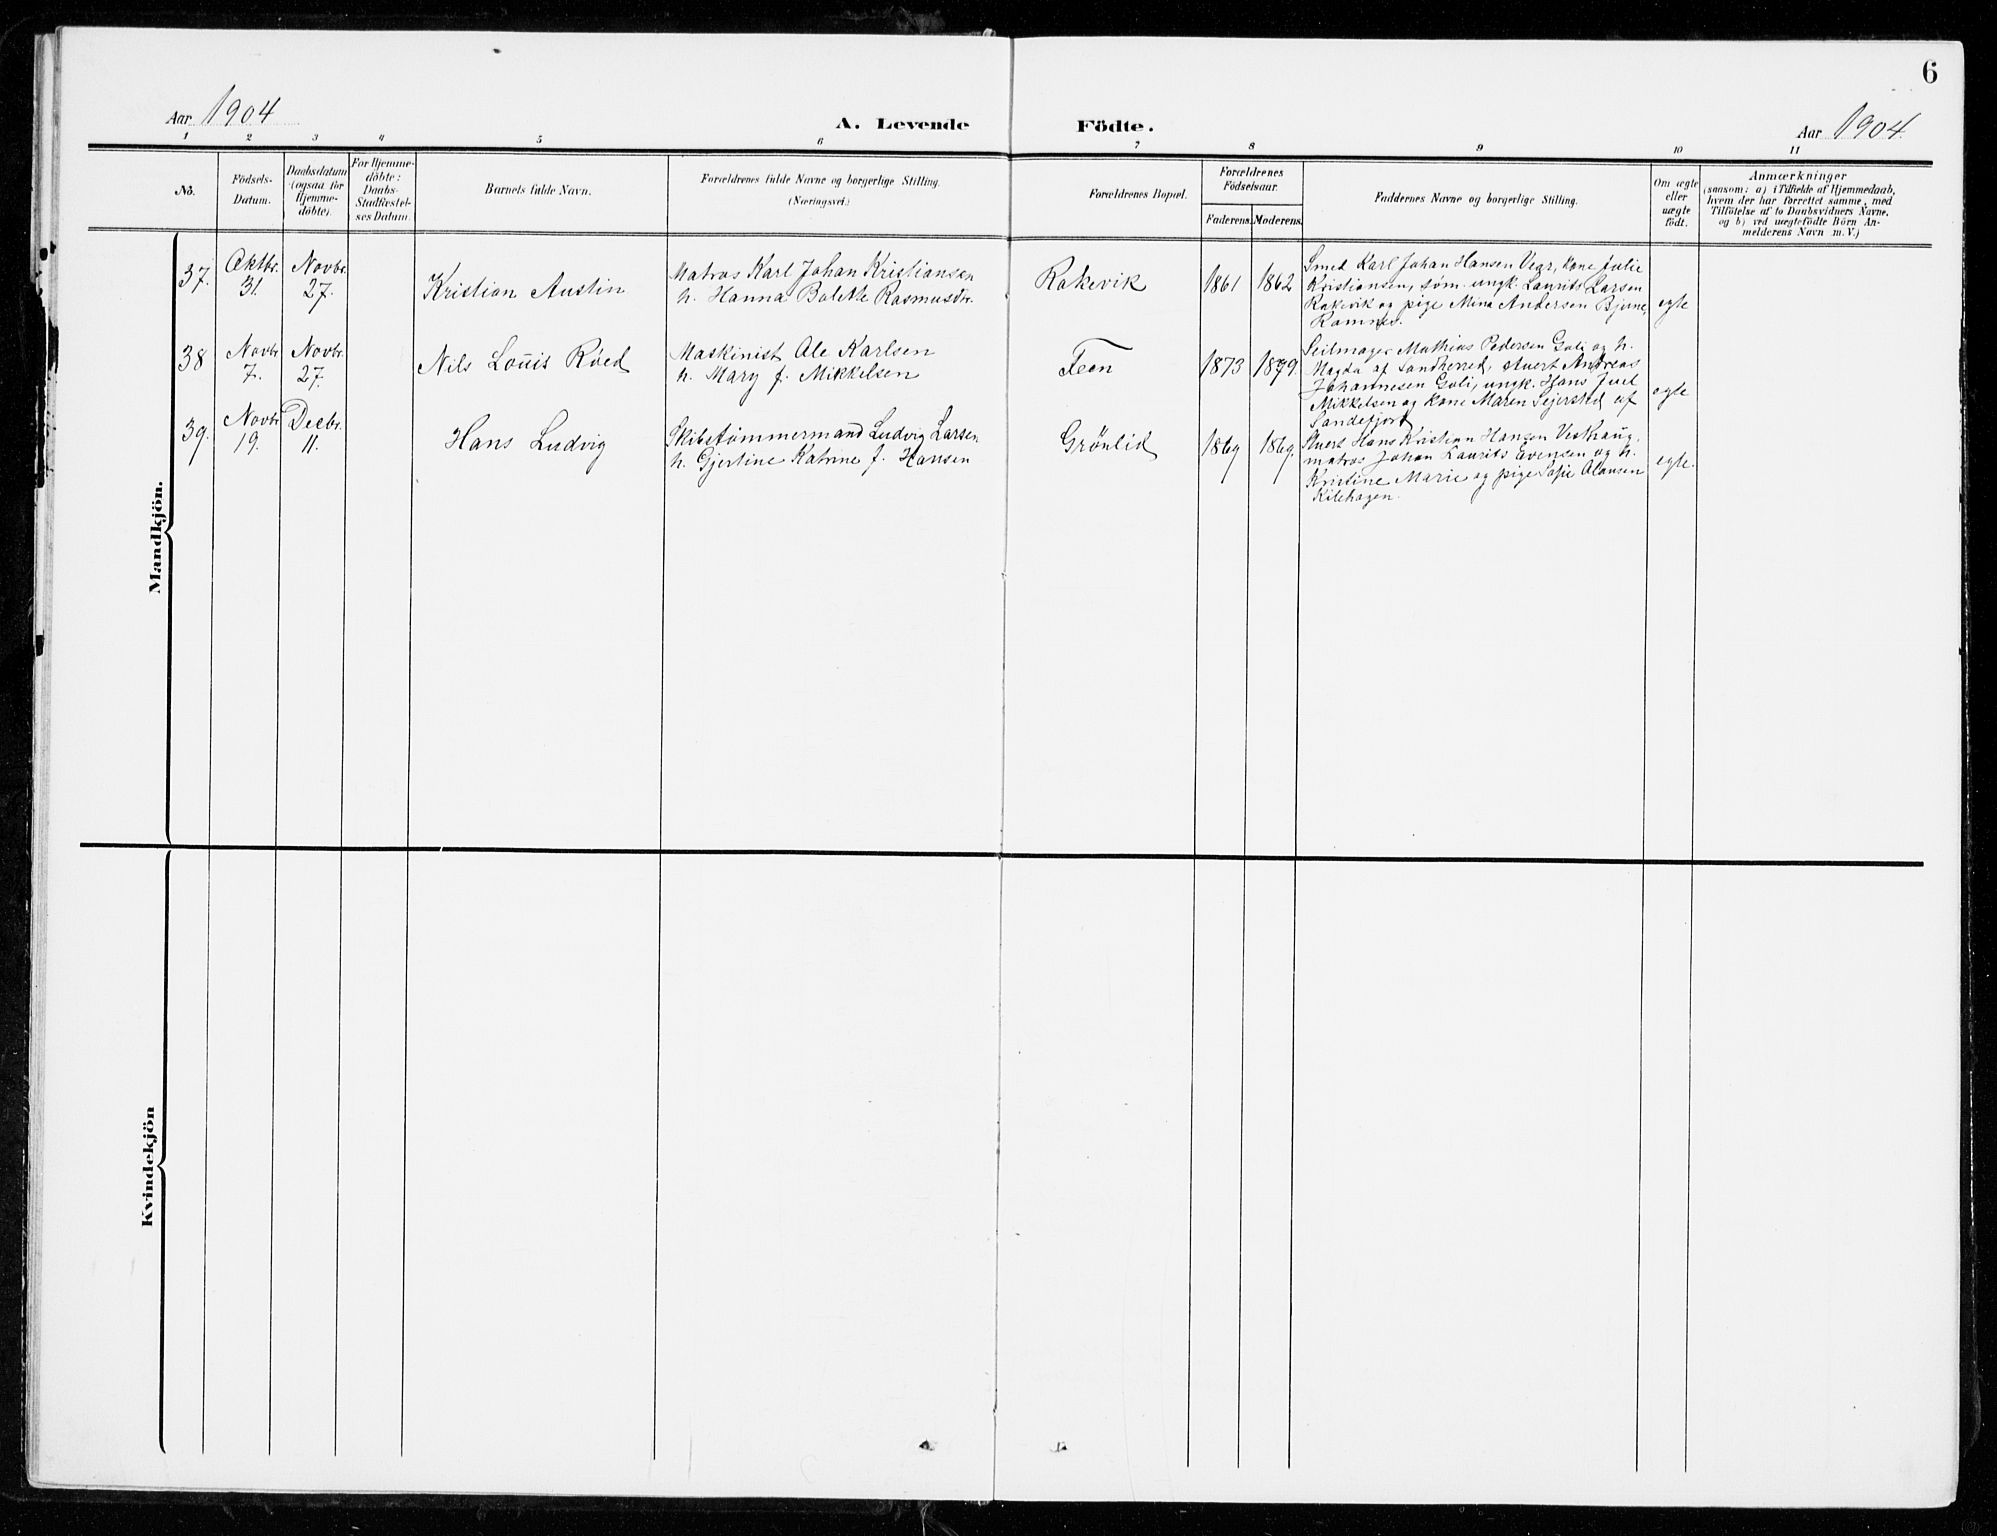 6
Aar 1904
A. Levende Födte.
Aar 1904.
1 2 3 4 5 6 7 8 9 10 11
No.
Födsels-
Datum.
Daabsdatum
(ogsaa for
Hjemme-
döbte).
For Hjemme-
döbte:
Daabs-
Stadfæstel-
ses Datum.
Barnets fulde Navn.
Forældrenes fulde Navne og borgerlige Stilling.
(Næringsvei.)
Forældrenes Bopæl.
Forældrenes
Födselsaar.
Faderens. Moderens.
Faddernes Navne og borgerlige Stilling.
Om ægte
eller
uægte
födt.
Anmærkninger
(saasom: a) i Tilfælde af Hjemmedaab,
hvem der har forrettet samme, med
Tilföielse af to Daabsvidners Navne,
og b) ved uægtefödte Börn An-
melderens Navn m. V.)
Mandkjön.
37.
Oktbr.
31.
Novbr.
27.
Kristian Austin
Matros Karl Johan Kristiansen
h. Hanna Bolette Rasmusdr.
Rakevik
1861
1862
Smed Karl Johan Hansen Vegr, kone Julie
Kristiansen, søm. ungk. Laurits Larsen
Rakevik og pige Mina Andersen Bjune,
Ramnes.
egte
38
Novbr.
7.
Novbr.
27.
Nils Louis Röed
Maskinist Ole Karlsen
h. Mary f. Mikkelsen
Feen
1873
1879.
Seilmager Mathias Pedersen Goli og h.
Magda af Sandherred, stuert Andreas
Johannesen Goli, ungk. Hans Juel
Mikkelsen og kone Maren Sejersted af
Sandefjord
egte
39.
Novbr.
19.
Decbr.
11.
Hans Ludvig
Skibstömmermand Ludvig Larsen
h. Gjertine Katrine f. Hansen
Grönlid
1869
1869.
Stuert Hans Kristian Hansen Veskaug,
matros Johan Laurits Evensen og h.
Kristine Marie og pige Sofie Olausen
Kilehagen.
egte.
Kvindekjön